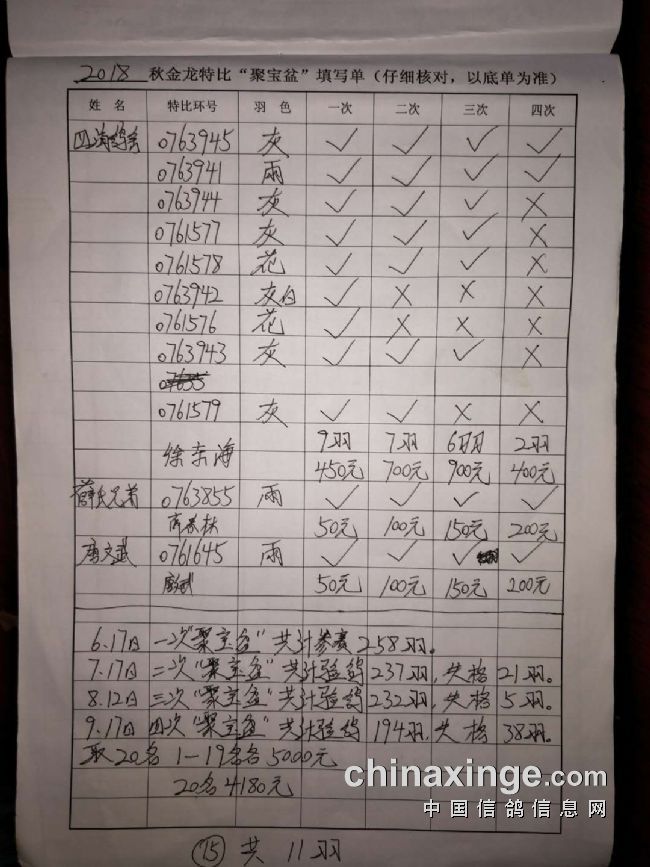 2018 秋金龙特比“聚宝盆”填写单（仔细核对，以底单为准）
姓 名 特比环号 羽 色 一次 二次 三次 四次
0763945 灰 ✓ ✓ ✓ ✓
0763941 雨 ✓ ✓ ✓ ✓
0763944 灰 ✓ ✓ ✓ ×
0761577 灰 ✓ ✓ ✓ ×
0761578 花 ✓ ✓ ✓ ×
0763942 灰白 ✓ × × ×
0761576 花 ✓ × × ×
0763943 灰 ✓ ✓ ✓ ×
0761579 灰 ✓ ✓ × ×
9羽 7羽 6羽 2羽
徐东海 450元 700元 900元 400元
薛氏兄弟 0763855 雨 ✓ ✓ ✓ ✓
50元 100元 150元 200元
唐文武 0761645 雨 ✓ ✓ ✓ ✓
50元 100元 150元 200元
6.17日 一次“聚宝盆”共计参赛258羽。
7.17日 二次“聚宝盆”共计验鸽237羽,失格21羽。
8.12日 三次“聚宝盆”共计验鸽232羽,失格5羽。
9.17日 四次“聚宝盆”共计验鸽194羽,失格38羽。
取20名 1-19名各5000元
20名4180元
chinaxinge.com
中国信鸽信息网
15 共 11羽